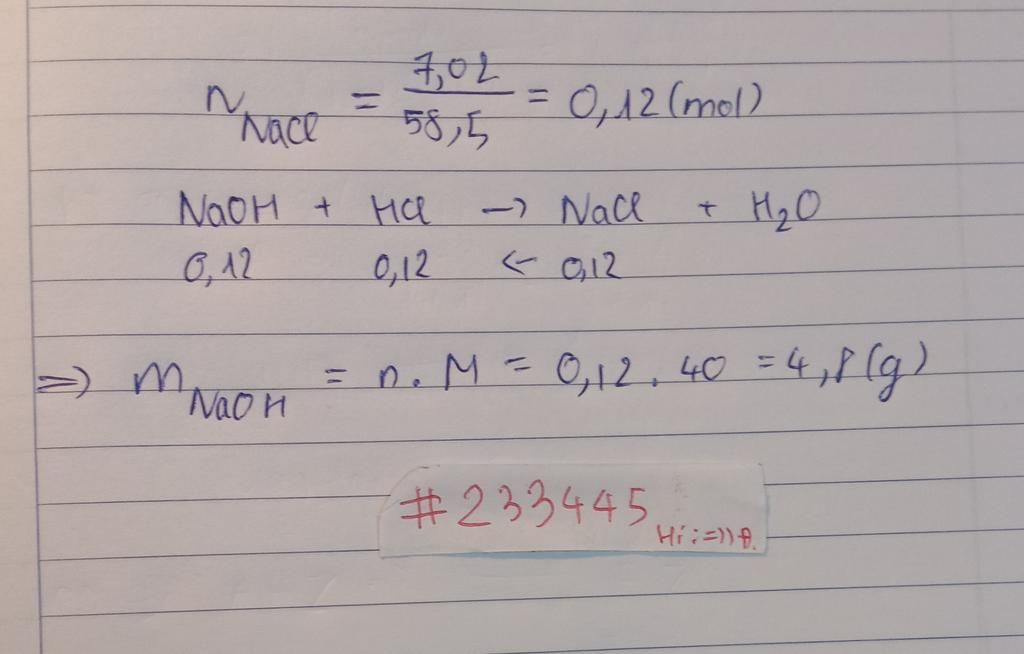 n NaCl = 7,02 / 58,5 = 0,12 (mol)
NaOH + HCl -> NaCl + H2O
0,12 0,12 <- 0,12
=> m NaOH = n . M = 0,12 . 40 = 4,8 (g)
#233445
Hi :=))